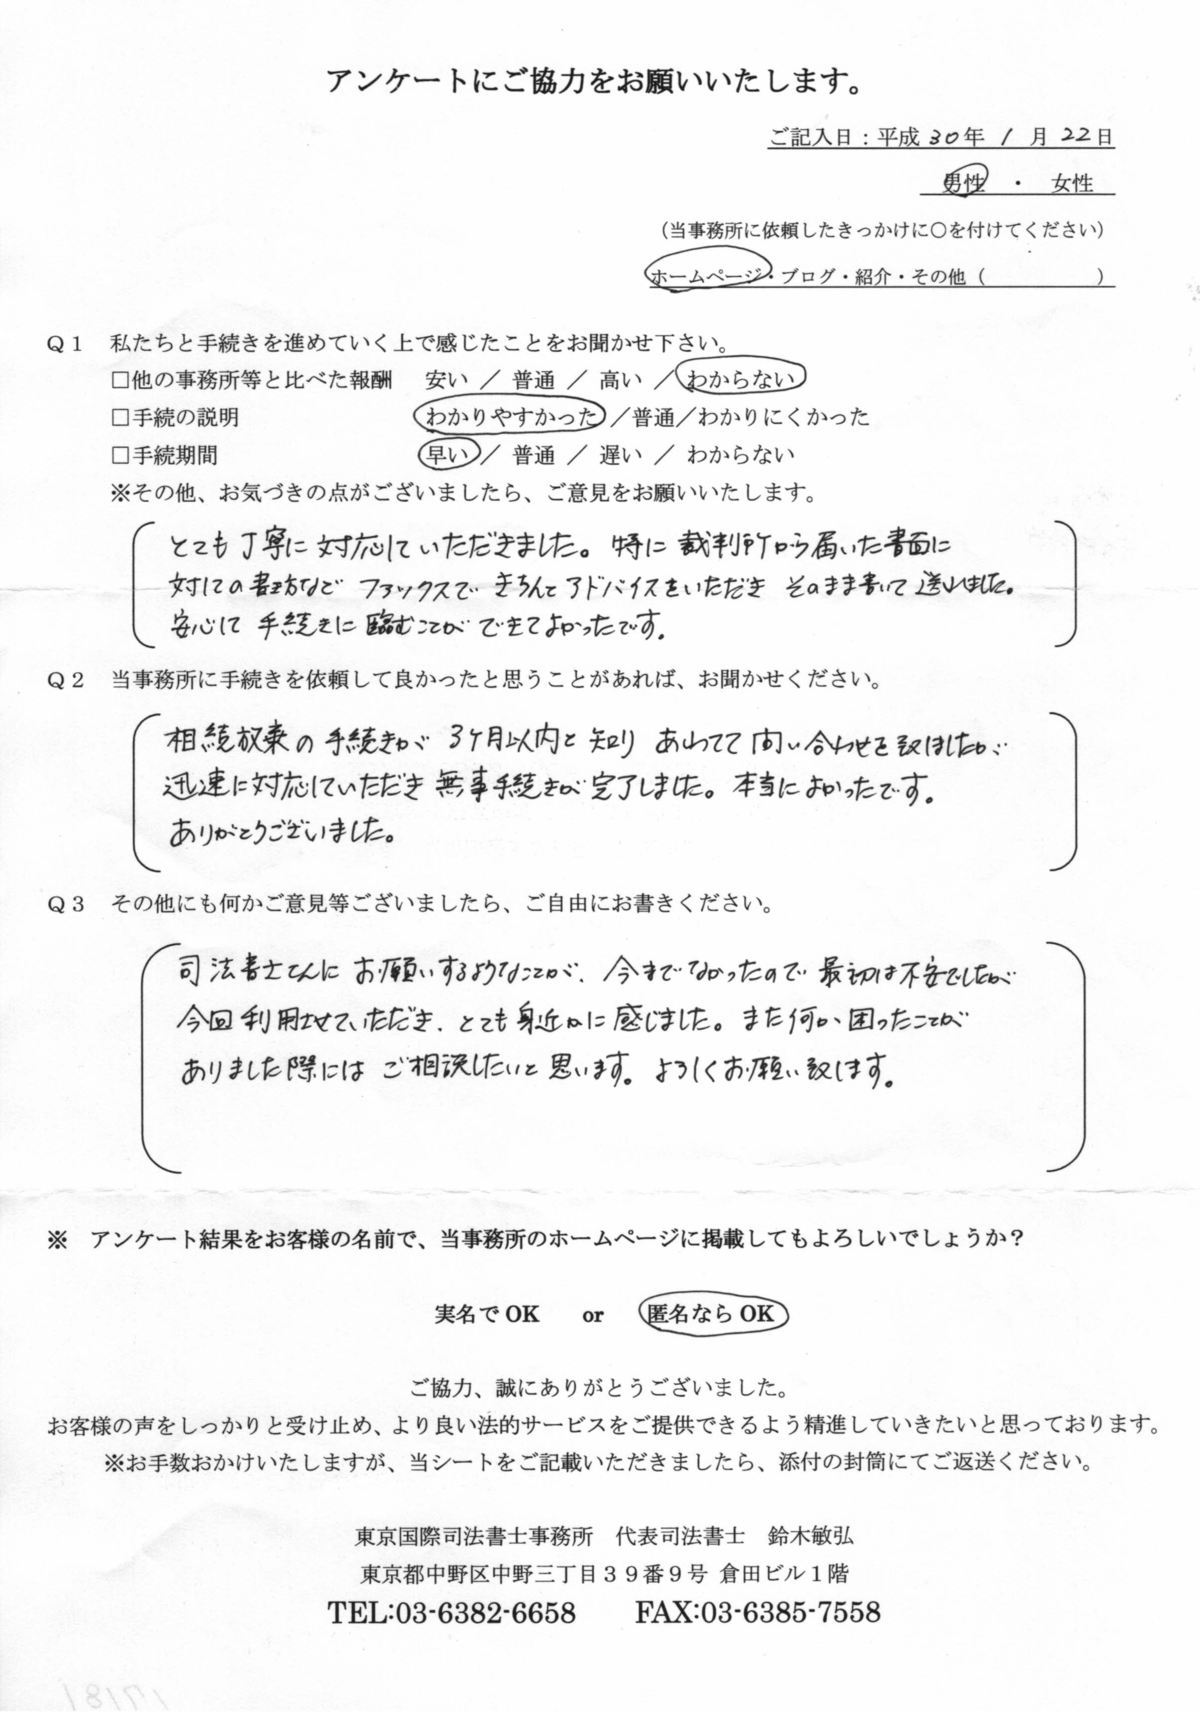 アンケートにご協力をお願いいたします。
ご記入日：平成30年 1 月 22日
男性 ・ 女性
（当事務所に依頼したきっかけに○を付けてください）
ホームページ・ブログ・紹介・その他（　　　　　）
Q1　私たちと手続きを進めていく上で感じたことをお聞かせ下さい。
□他の事務所等と比べた報酬　安い ／ 普通 ／ 高い ／わからない
□手続の説明　わかりやすかった／普通／わかりにくかった
□手続期間　早い／ 普通 ／ 遅い ／ わからない
※その他、お気づきの点がございましたら、ご意見をお願いいたします。
とても丁寧に対応していただきました。特に裁判所から届いた書面に
対しての書き方など ファックスで きちんとアドバイスをいただき そのまま書いて送れました。
安心して 手続きに 臨むことが できてよかったです。
Q2　当事務所に手続きを依頼して良かったと思うことがあれば、お聞かせください。
相続放棄の手続きが 3ヶ月以内と 知り あわてて 問い合わせを致しましたが
迅速に対応していただき 無事手続きが完了しました。本当によかったです。
ありがとうございました。
Q3　その他にも何かご意見等ございましたら、ご自由にお書きください。
司法書士さんに お願いするようなことが、今までなかったので 最初は不安でしたが
今回利用させていただき、とても身近かに感じました。また何か困ったことが
ありました際には ご相談したいと思います。よろしくお願い致します。
※　アンケート結果をお客様の名前で、当事務所のホームページに掲載してもよろしいでしょうか？
実名でOK　or　匿名ならOK
ご協力、誠にありがとうございました。
お客様の声をしっかりと受け止め、より良い法的サービスをご提供できるよう精進していきたいと思っております。
※お手数おかけいたしますが、当シートをご記載いただきましたら、添付の封筒にてご返送ください。
東京国際司法書士事務所　代表司法書士　鈴木敏弘
東京都中野区中野三丁目３９番９号 倉田ビル１階
TEL:03-6382-6658　FAX:03-6385-7558